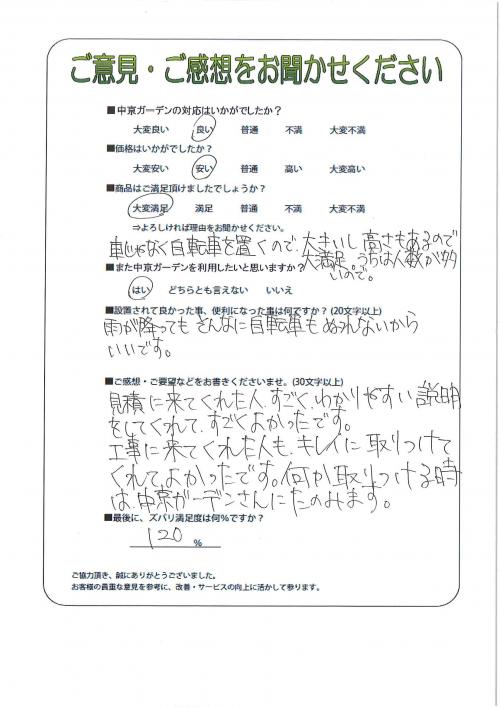 ご意見・ご感想をお聞かせください
■中京ガーデンの対応はいかがでしたか？
大変良い 良い 普通 不満 大変不満
■価格はいかがでしたか？
大変安い 安い 普通 高い 大変高い
■商品はご満足頂けましたでしょうか？
大変満足 満足 普通 不満 大変不満
⇒よろしければ理由をお聞かせください。
車じゃなく自転車を置くので、大きいし高さもあるので
大満足。うちは人数が多
いので。
■また中京ガーデンを利用したいと思いますか？
はい どちらとも言えない いいえ
■設置されて良かった事、便利になった事は何ですか？(20文字以上)
雨が降ってもそんなに自転車もぬれないから
いいです。
■ご感想・ご要望などをお書きくださいませ。(30文字以上)
見積に来てくれた人、すごく、わかりやすい説明
をしてくれて、すごくよかったです。
工事に来てくれた人も、キレイに取りつけて
くれて、よかったです。何か取りつける時
は、中京ガーデンさんにたのみます。
■最後に、ズバリ満足度は何％ですか？
120 %
ご協力頂き、誠にありがとうございました。
お客様の貴重な意見を参考に、改善・サービスの向上に活かして参ります。